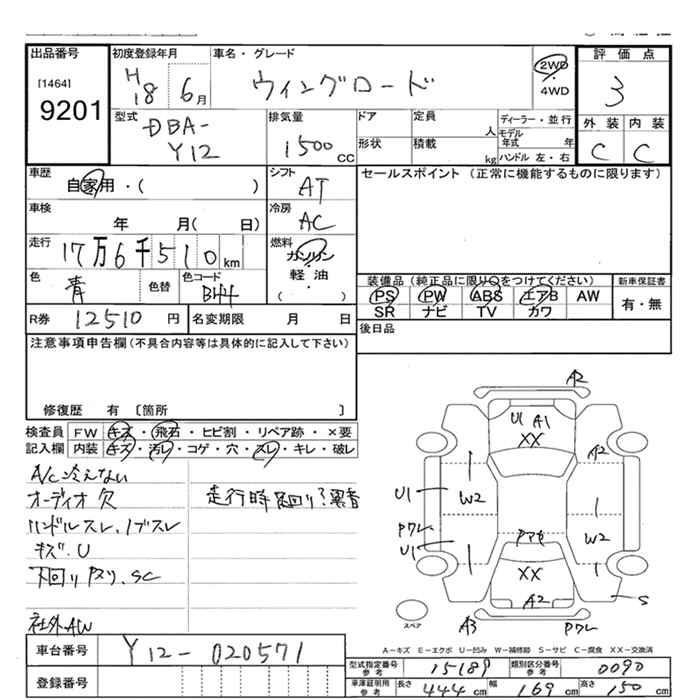 出品番号
[1464]
9201
初度登録年月
H18 6月
車名・グレード
ウィングロード
2WD
・
4WD
評価点
3
外装 内装
C C
型式
DBA-
Y12
排気量
1500 CC
ドア
形状
定員
人
積載
kg
ディーラー・並行
モデル
年式 年
ハンドル 左・右
車歴
自家用・( )
シフト
AT
セールスポイント(正常に機能するものに限ります)
車検
年 月( 日)
冷房
AC
走行
17万6千510km
燃料
ガソリン
軽油
( ・ )
色
青
色替
色コード
B44
装備品(純正品に限り○をつけてください)
新車保証書
PS PW ABS エアB AW
SR ナビ TV カワ
有・無
R券 12510円
名変期限 月 日
後日品
注意事項申告欄(不具合内容等は具体的に記入して下さい)
修復歴 有 〔箇所 〕
検査員 FW キズ・飛石・ヒビ割・リペア跡・×要
記入欄 内装 キズ・汚レ・コゲ・穴・スレ・キレ・破レ
A/C冷えない
オーディオ欠
走行時 足回り?異音
ハンドルスレ、ノブスレ
キズ、U
下回りサビ、SC
社外AW
A2
U A1
XX
A2
U1
W2
Pワレ
U1
W2
XX
A2
S
A3
Pワレ
スペア
A-キズ E-エクボ U-凹み W-補修跡 S-サビ C-腐食 XX-交換済
車台番号 Y12-020571
登録番号
型式指定番号
参考
15189
類別区分番号
参考
0090
車庫証明用
参考
長さ 444cm 幅 169cm 高さ 150cm